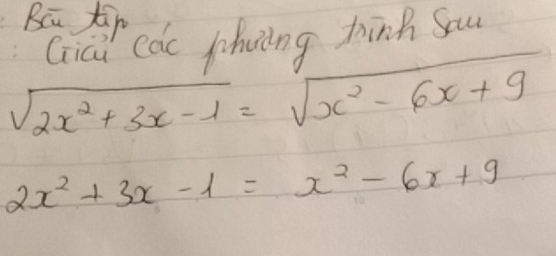 : Bài tập
: Giải các phương trình sau
√2x² + 3x - 1 = √x² - 6x + 9
2x² + 3x - 1 = x² - 6x + 9